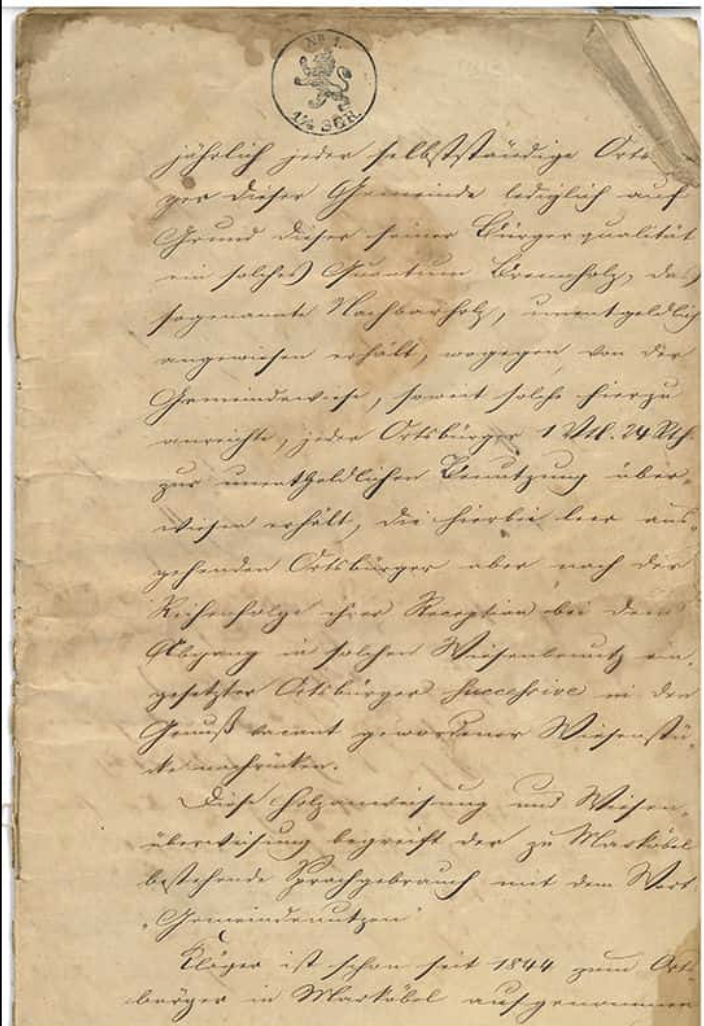 No 1.
1¼ SGR.
jährlich jeder selbstständige Orts
ger dieser Gemeinde lediglich auf
Grund dieser seiner Bürgerqualität
ein solches Quantum Brennholz, das
sogenannte Nachbarholz, unentgeldlich
angewiesen erhält, wogegen von der
Gemeindewiese, soweit solche hierzu
anreichte, jeder Ortsbürger 1 Vtl. 24 Rth.
zur unentgeldlichen Benutzung über-
wiesen erhält, die hierbei leer aus-
gehenden Ortsbürger aber nach der
Reihenfolge ihrer Reception bei dem
Abgang in solchen Wiesenbenutz ein-
gesetzter Ortsbürger successive in den
Genuß vacant gewordener Wiesenstü-
cke nachrücken.
Diese Holzanweisung und Wiesen-
überweisung begreift der zu Marköbel
bestehende Sprachgebrauch mit dem Wort
„Gemeindenutzen"
Kläger ist schon seit 1844 zum Orts
bürger in Marköbel aufgenommen